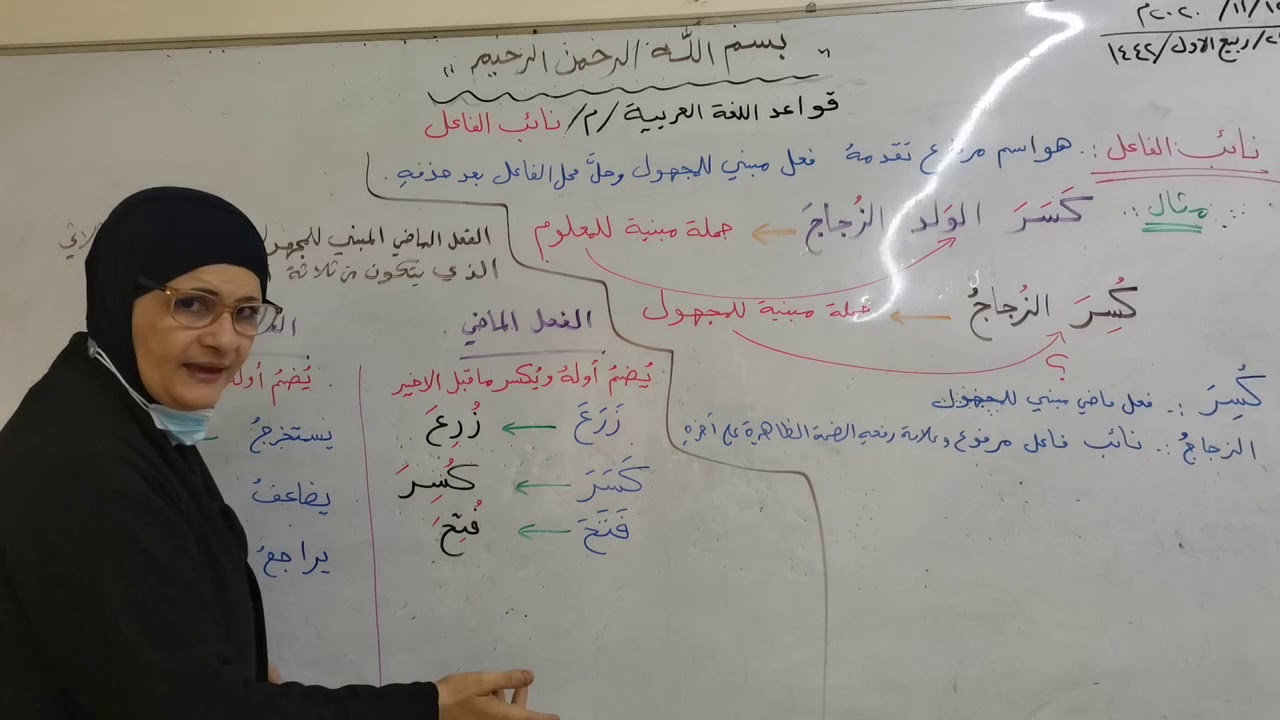 ١١/ ٢٠٢٠م
ربيع الاول/١٤٤٢
" بسم الله الرحمن الرحيم "
قواعد اللغة العربية /م/ نائب الفاعل
نائب الفاعل :. هو اسم مرفوع تقدمهُ فعل مبني للمجهول وحلَّ محل الفاعل بعد حذفهِ.
مثال :. كَسَرَ الوَلد الزُجاجَ ← جملة مبنية للمعلوم
كُسِرَ الزُجاجُ ← جملة مبنية للمجهول
؟
كُسِرَ :. فعل ماضي مبني للمجهول
الزجاجُ :. نائب فاعل مرفوع وعلامة رفعهِ الضمة الظاهرة على أخرهِ
الفعل الماضي المبني للمجهول
الذي يتكون من ثلاثة
الفعل الماضي
يُضمُ أولهُ ويُكسر ماقبل الاخير
زَرَعَ ← زُرِعَ
كَسَرَ ← كُسِرَ
فَتَحَ ← فُتِحَ
يُضمُ أوله
يستخرجُ
يضاعفُ
يراجعُ